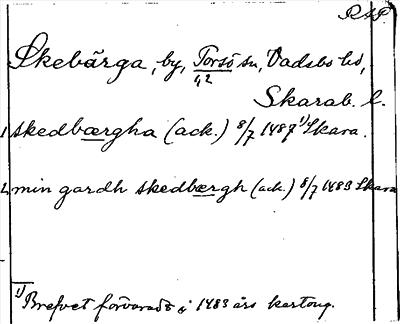 RAP.
Skebärga, by, Torsö sn, Vadsbo hd,
1,2
Skarab. l.
1 skedbærgha (ack.) 8/7 1487 1) Skara.
2 min gardh skedbærgh (ack.) 8/7 1483 Skara
1) Brefvet förvaradt i 1483 års kartong.